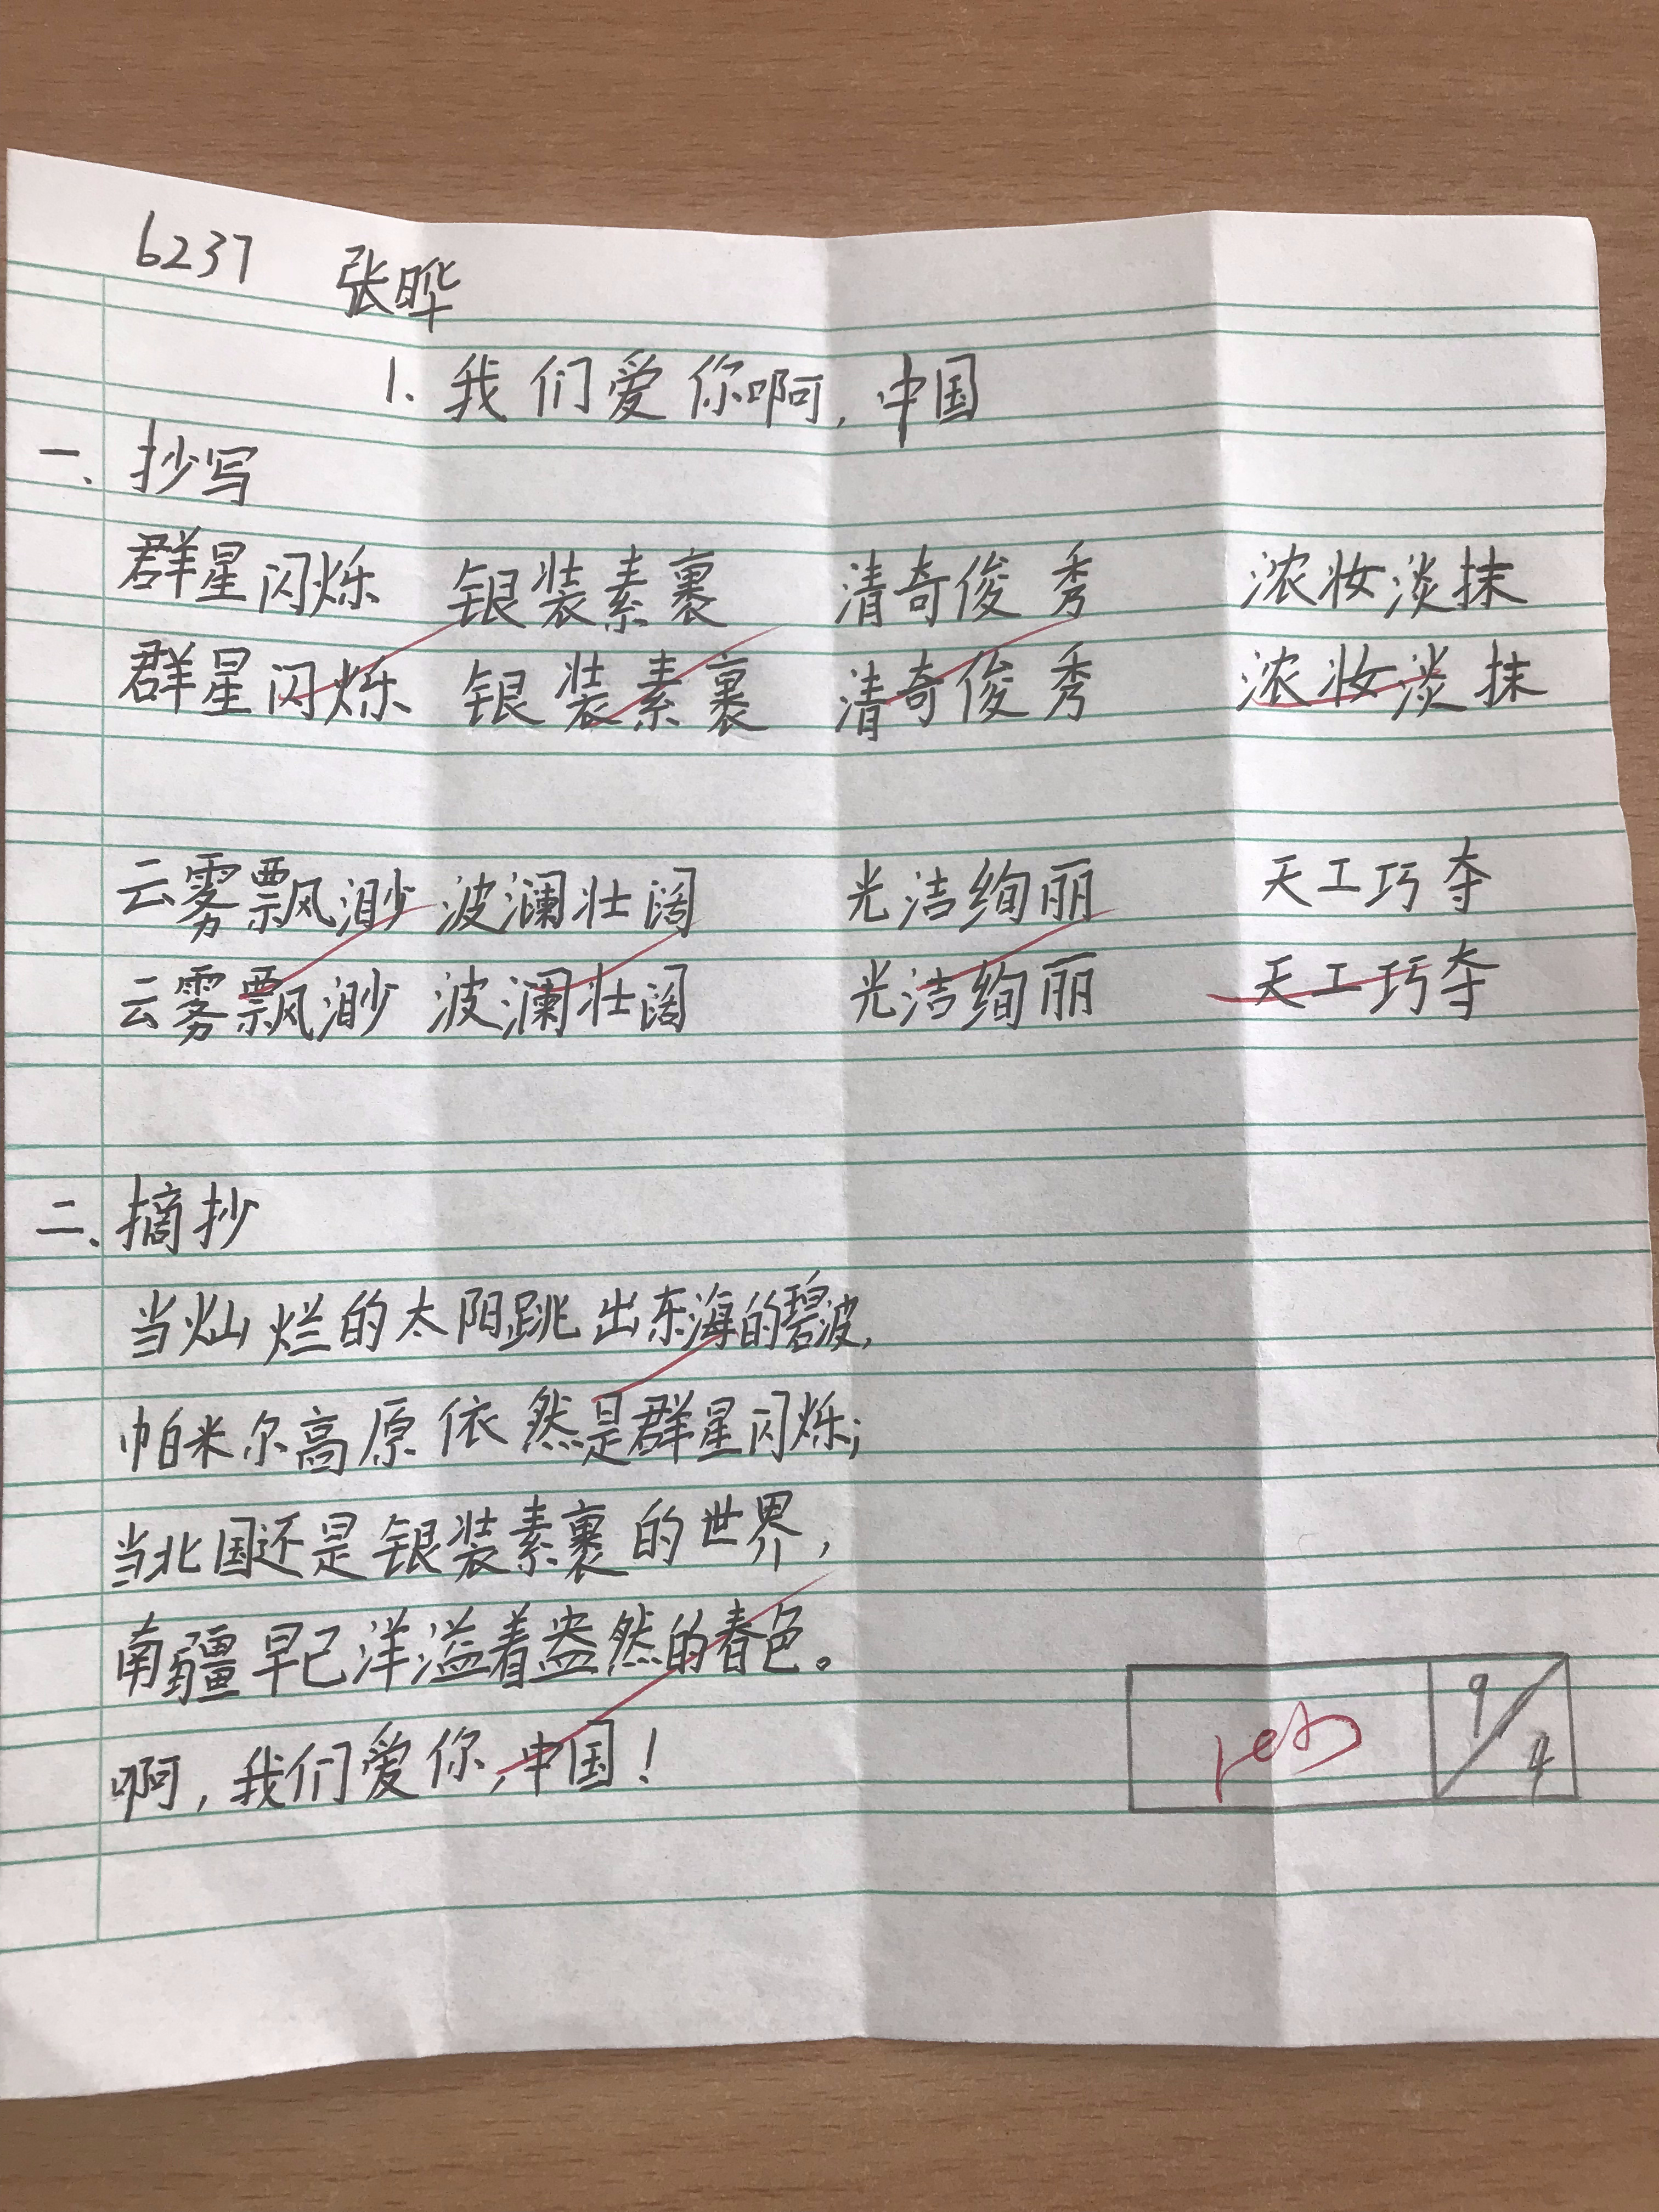 6237 张晔
1. 我们爱你啊,中国
一、抄写
群星闪烁 银装素裹 清奇俊秀 浓妆淡抹
群星闪烁 银装素裹 清奇俊秀 浓妆淡抹
云雾飘渺 波澜壮阔 光洁绚丽 天工巧夺
云雾飘渺 波澜壮阔 光洁绚丽 天工巧夺
二、摘抄
当灿烂的太阳跳出东海的碧波,
帕米尔高原依然是群星闪烁;
当北国还是银装素裹的世界,
南疆早已洋溢着盎然的春色。
啊,我们爱你,中国!
9/4